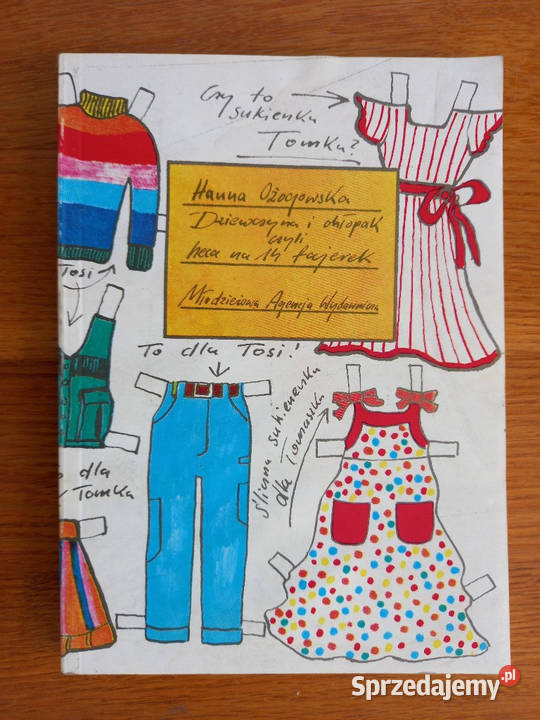 Czy to
sukienka
Tomka?
Hanna Ożogowska
Dziewczyna i chłopak
czyli
heca na 14 fajerek
Młodzieżowa Agencja Wydawnicza
Tosi
To dla Tosi!
śliczna sukieneczka
dla Tomaszka
o dla
Tomka
Sprzedajemy.pl